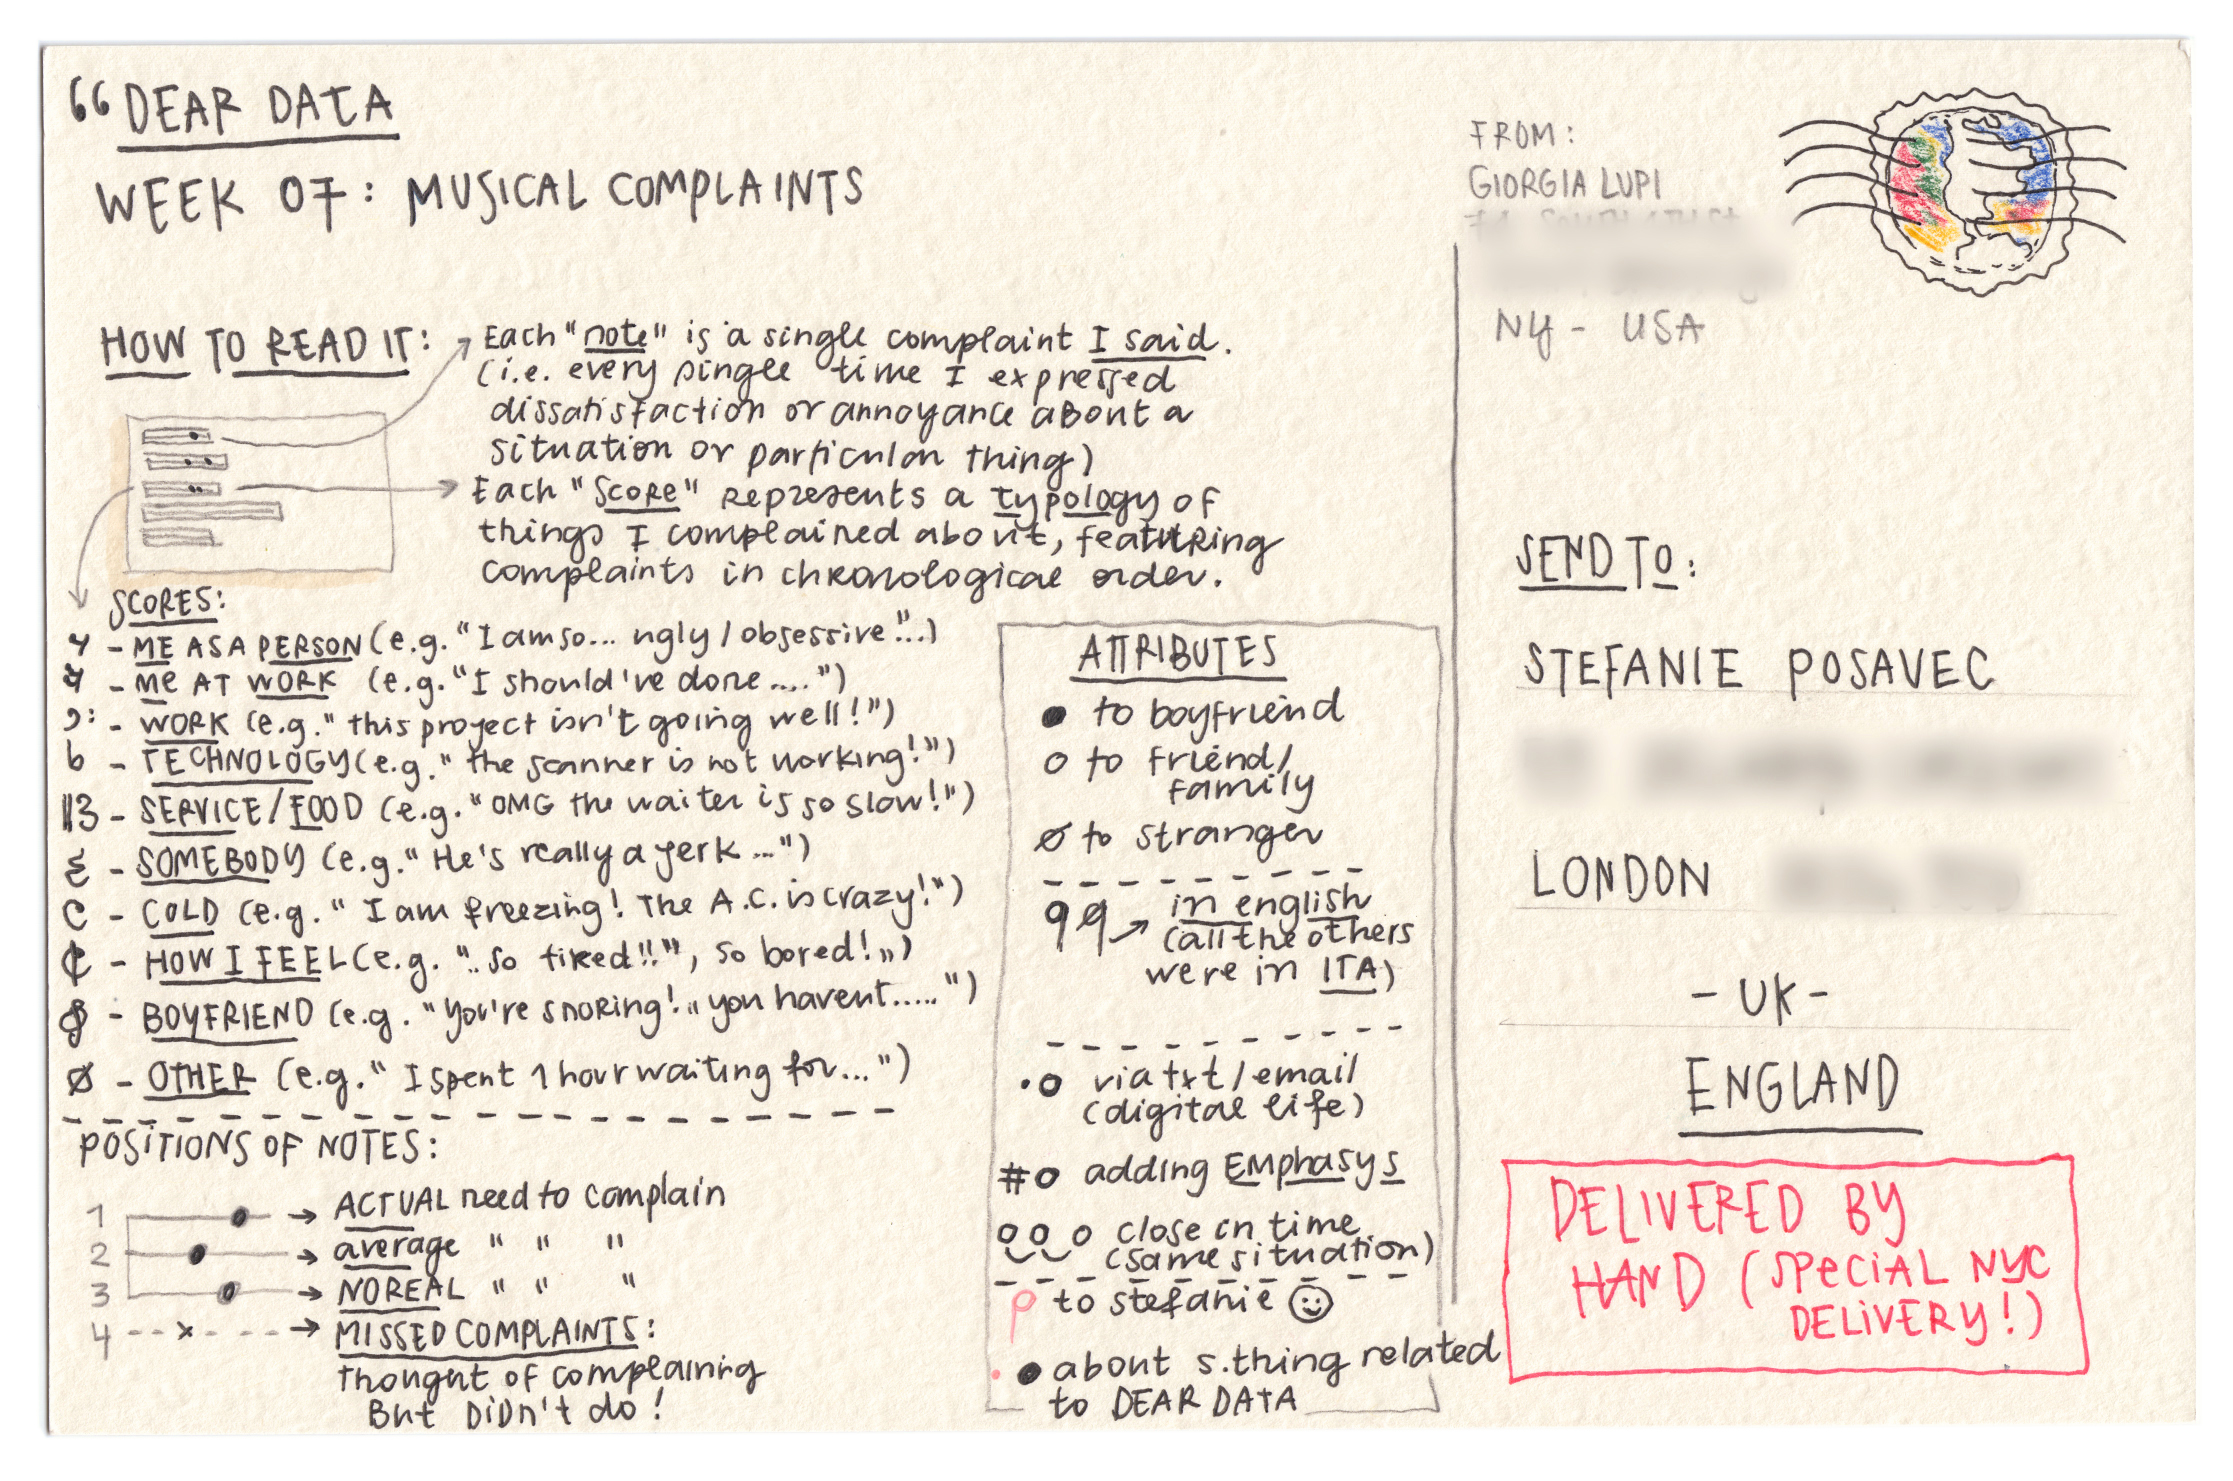 “DEAR DATA
WEEK 07: MUSICAL COMPLAINTS
HOW TO READ IT:
Each "note" is a single complaint I said.
(i.e. every single time I expressed
dissatisfaction or annoyance about a
situation or particular thing)
Each "SCORE" represents a typology of
things I complained about, featuring
complaints in chronological order.
SCORES:
- ME AS A PERSON (e.g. "I am so... ugly / obsessive"...)
- Me AT WORK (e.g. "I should've done....")
- WORK (e.g. "this project isn't going well!")
- TECHNOLOGY (e.g. "the scanner is not working!")
- SERVICE/FOOD (e.g. "OMG the waiter is so slow!")
- SOMEBODY (e.g. "He's really a jerk...")
- COLD (e.g. "I am freezing! The A.C. is crazy!")
- HOW I FEEL (e.g. "..so tired!!", so bored!")
- BOYFRIEND (e.g. "You're snoring!" "you havent.....")
- OTHER (e.g. "I spent 1 hour waiting for...")
POSITIONS OF NOTES:
1 → ACTUAL need to complain
2 → average " " "
3 → NO REAL " " "
4 --x--- → MISSED COMPLAINTS:
thought of complaining
But DiDn't do!
ATTRIBUTES
to boyfriend
to friend/
family
to stranger
in english
(all the others
were in ITA)
via txt / email
(digital life)
# adding EMphasys
close in time
(same situation)
to stefanie
about s.thing related
to DEAR DATA
FROM:
GIORGIA LUPI
NY - USA
SEND TO:
STEFANIE POSAVEC
LONDON
- UK -
ENGLAND
DELIVERED BY
HAND (SPECIAL NYC
DELIVERY!)